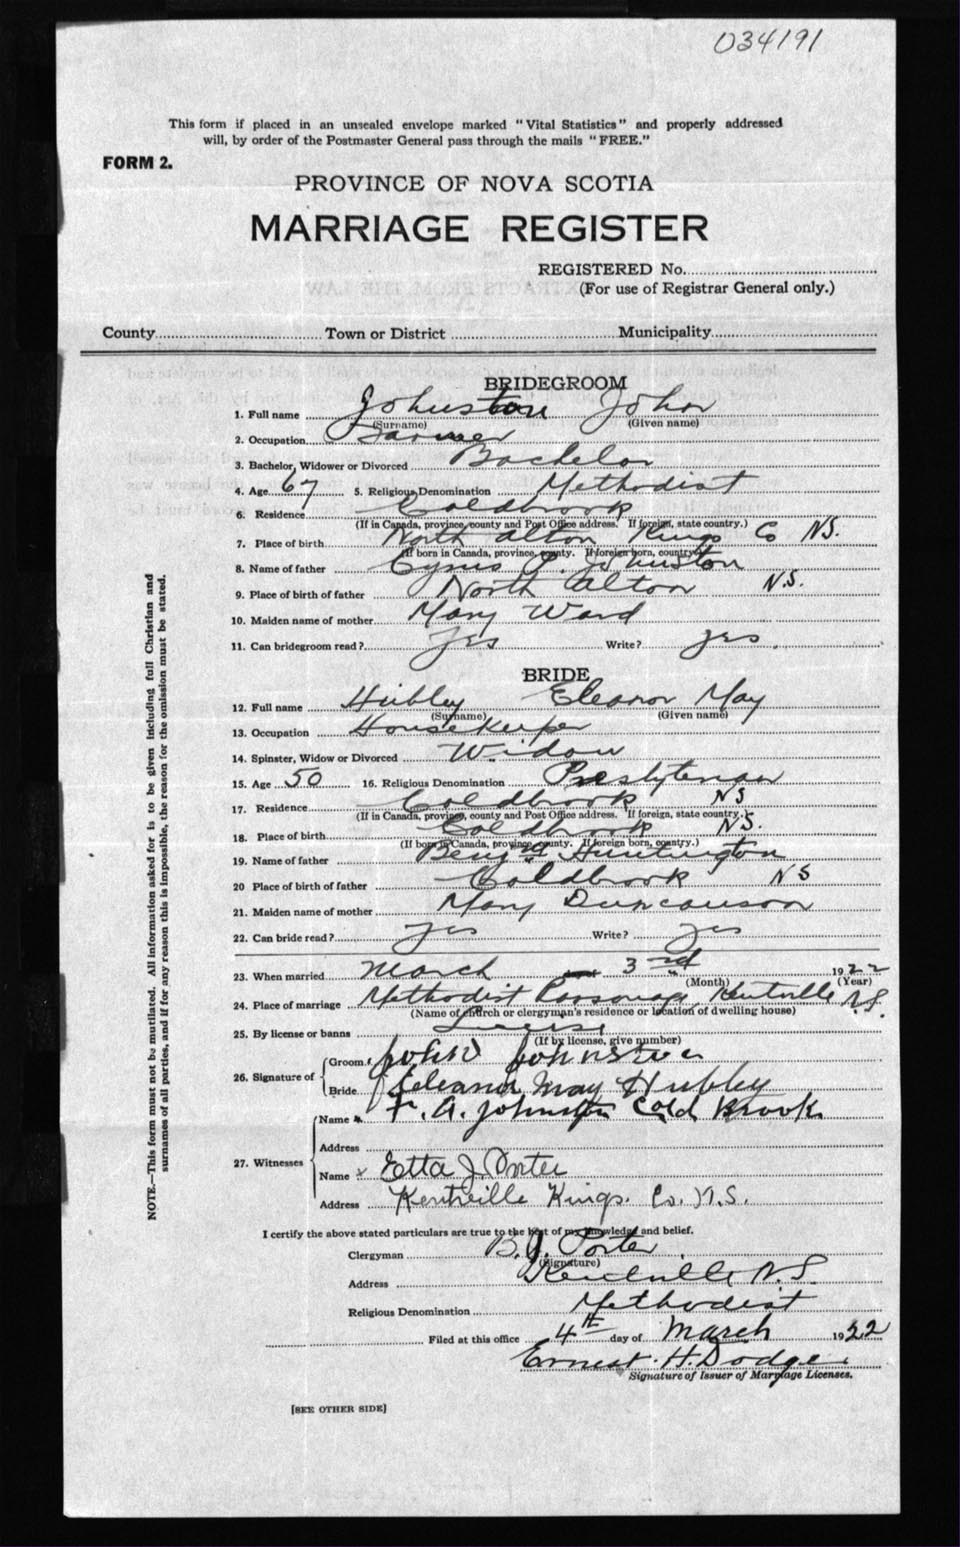 034191
This form if placed in an unsealed envelope marked "Vital Statistics" and properly addressed
will, by order of the Postmaster General pass through the mails "FREE."
FORM 2.
PROVINCE OF NOVA SCOTIA
MARRIAGE REGISTER
REGISTERED No.
(For use of Registrar General only.)
County Town or District Municipality
BRIDEGROOM
1. Full name Johnston John
(Surname) (Given name)
2. Occupation Farmer
3. Bachelor, Widower or Divorced Bachelor
4. Age 67 5. Religious Denomination Methodist
6. Residence Coldbrook
(If in Canada, province, county and Post Office address. If foreign, state country.)
7. Place of birth North Alton Kings Co NS.
(If born in Canada, province, county. If foreign born, country)
8. Name of father Cyrus Johnston
9. Place of birth of father North Alton N.S.
10. Maiden name of mother Mary Ward
11. Can bridegroom read? Yes Write? yes
BRIDE
12. Full name Hubley Eleanor May
(Surname) (Given name)
13. Occupation Housekeeper
14. Spinster, Widow or Divorced Widow
15. Age 50 16. Religious Denomination Presbyterian
17. Residence Coldbrook NS
(If in Canada, province, county and Post Office address. If foreign, state country.)
18. Place of birth Coldbrook NS.
(If born in Canada, province, county. If foreign born, country.)
19. Name of father Benj Huntington
20 Place of birth of father Coldbrook NS
21. Maiden name of mother Mary Duncanson
22. Can bride read? yes Write? yes
23. When married March 3rd 1922
(Month) (Year)
24. Place of marriage Methodist Parsonage, Kentville N.S.
(Name of church or clergyman's residence or location of dwelling house)
25. By license or banns License
(If by license, give number)
26. Signature of Groom John Johnston
Bride Eleanor May Hubley
27. Witnesses Name F. A. Johnston Cold Brook
Address
Name x Etta J. Porter
Address Kentville Kings. Co. N.S.
I certify the above stated particulars are true to the best of my knowledge and belief.
Clergyman B. J. Porter
(Signature)
Address Kentville N.S.
Religious Denomination Methodist
Filed at this office 4th day of March 1922
Ernest. H. Dodge
Signature of Issuer of Marriage Licenses.
[SEE OTHER SIDE]
NOTE.—This form must not be mutilated. All information asked for is to be given including full Christian and
surnames of all parties, and if for any reason this is impossible, the reason for the omission must be stated.